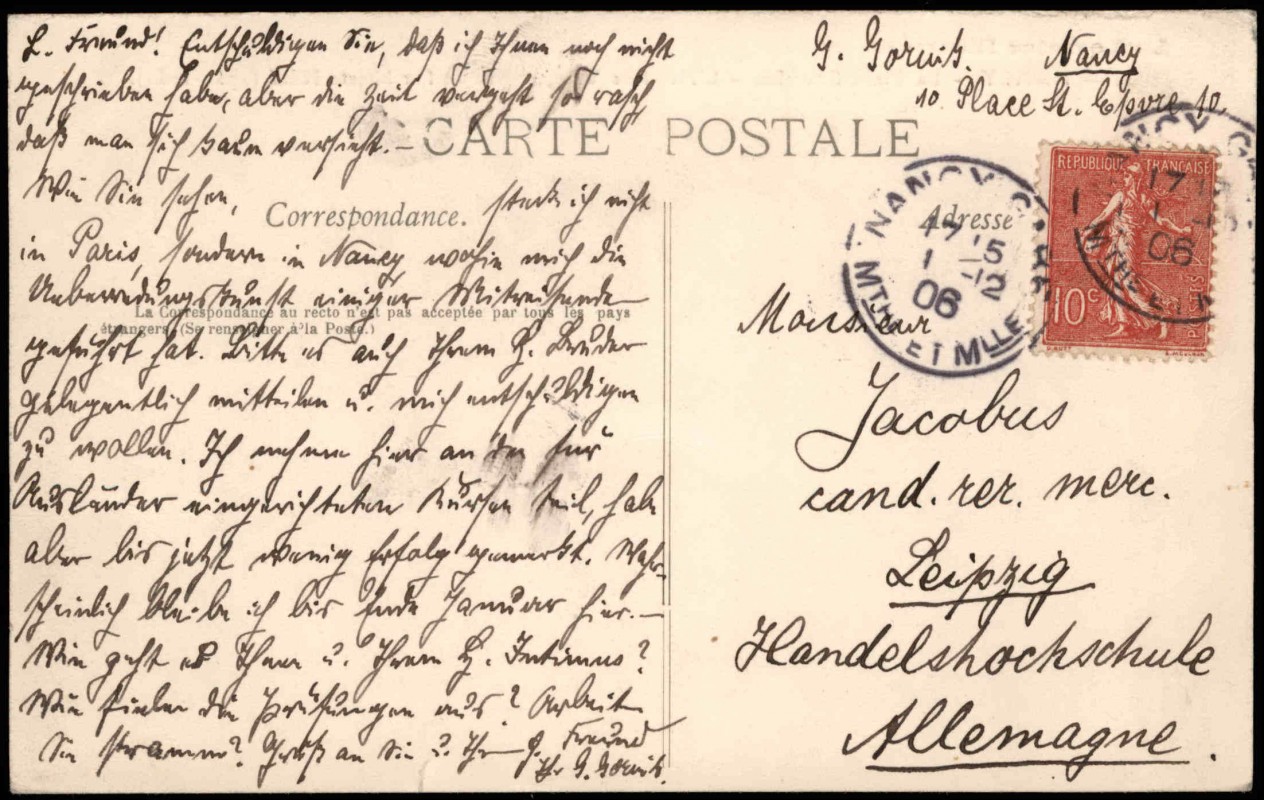 L. Freund! Entschuldigen Sie, daß ich Ihnen noch nicht
geschrieben habe, aber die Zeit vergeht so rasch
daß man sich kaum versieht. –
Wie Sie sehen, steck ich nicht
in Paris, sondern in Nancy, wohin mich die
Ueberredungskunst einiger Mitreisende
geführt hat. Bitte es auch Ihrem H. Bruder
gelegentlich mitteilen u. mich entschuldigen
zu wollen. Ich nehme hier an den für
Ausländer eingerichteten Kursen teil, habe
aber bis jetzt wenig Erfolg gemerkt. Wahr-
scheinlich bleibe ich bis Ende Januar hier. –
Wie geht es Ihnen u. Ihrem H. Intimus?
Wie fielen die Prüfungen aus? Arbeiten
Sie stramm? Gruß an Sie u. Ihren Freund
Ihr G. Gorvits.
CARTE POSTALE
Correspondance.
La Correspondance au recto n'est pas acceptée par tous les pays
étrangers (Se renseigner à la Poste.)
G. Gorvits. Nancy
10 Place St. Epvre 10
Adresse
NANCY GARE
17 15
1 12
06
MTHE ET MLLE
REPUBLIQUE FRANÇAISE
10 c
POSTES
Monsieur
Jacobus
cand. rer. merc.
Leipzig
Handelshochschule
Allemagne.